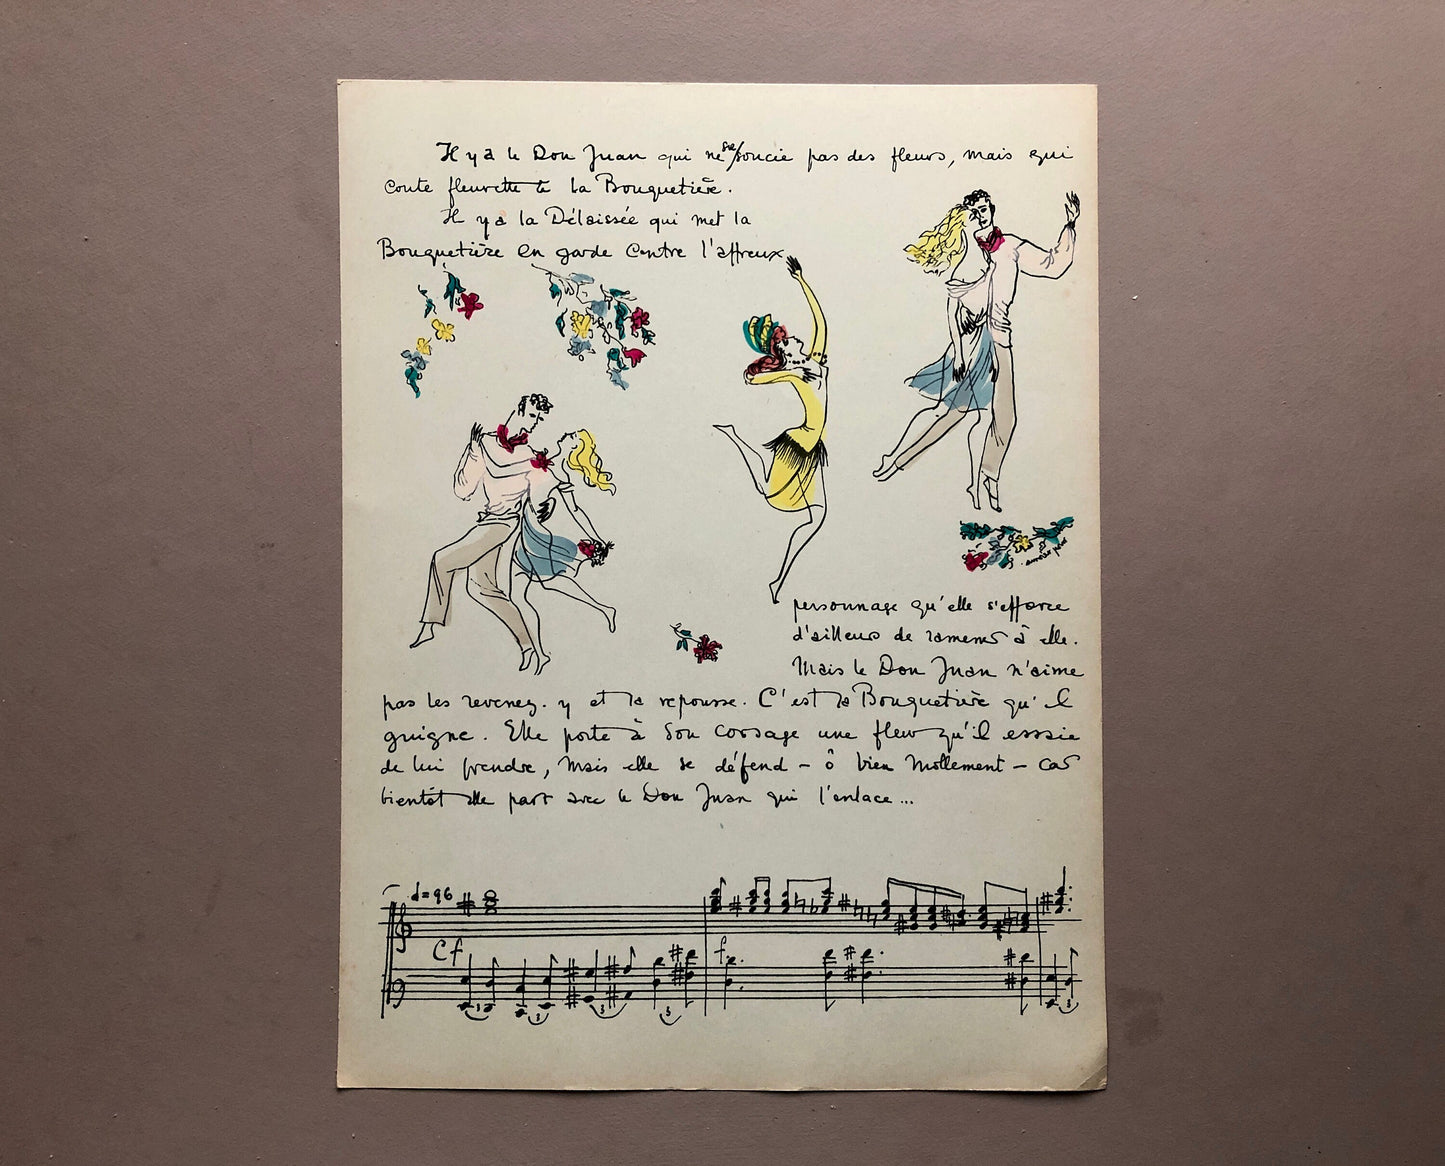 Il y a le Don Juan qui ne se/soucie pas des fleurs, mais qui
conte fleurette à la Bouquetière.
Il y a la Délaissée qui met la
Bouquetière en garde contre l'affreux
personnage qu'elle s'efforce
d'ailleurs de ramener à elle.
Mais le Don Juan n'aime
pas les revenez-y et la repousse. C'est la Bouquetière qu'il
guigne. Elle porte à son corsage une fleur qu'il essaie
de lui prendre, mais elle se défend - ô bien mollement - car
bientôt elle part avec le Don Juan qui l'enlace...
d = 96
C f
f
3 3 3 3 3